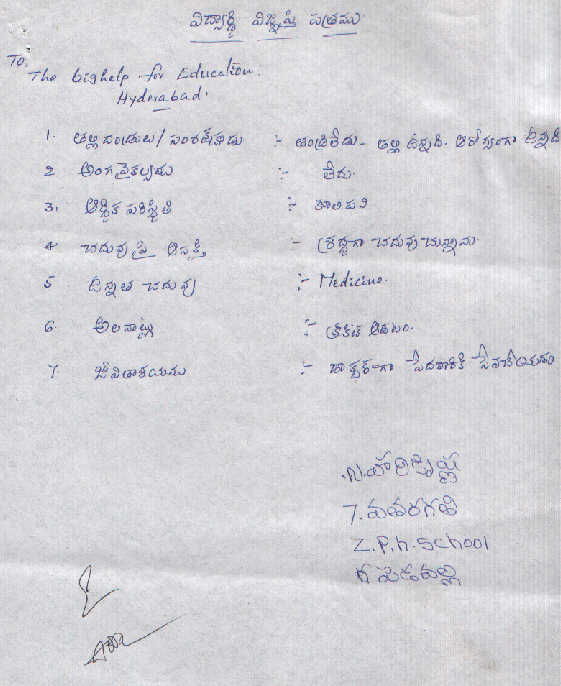 విద్యార్థి విజ్ఞప్తి పత్రము
To,
The bighelp for Education.
Hyderabad.
1. తల్లిదండ్రులు/సంరక్షకుడు :- తండ్రిలేడు- తల్లి ఉన్నది. ఆరోగ్యంగా ఉన్నది
2 అంగవైకల్యము :- లేదు.
3. ఆర్థిక పరిస్థితి :- కూలిపని
4. చదువుపై ఆసక్తి - శ్రద్ధగా చదువుచున్నాను.
5 ఉన్నత చదువు :- Medicine.
6. అలవాట్లు :- క్రికెట్ ఆడటం.
7. జీవితాశయము :- డాక్టర్-గా పేదవారికి సేవచేయుట
7. వతరగతి
Z.P.h. School